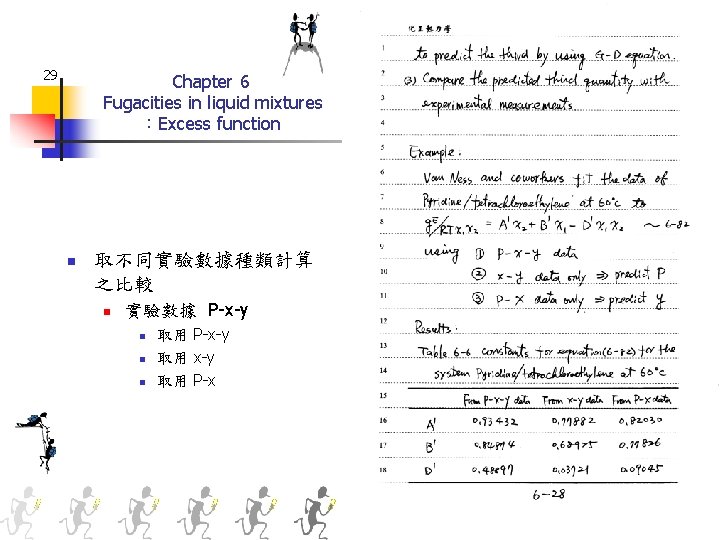 29
Chapter 6
Fugacities in liquid mixtures
：Excess function
取不同實驗數據種類計算
之比較
實驗數據 P-x-y
取用 P-x-y
取用 x-y
取用 P-x
化工熱力學
1 to predict the third by using G-D equation.
2 (3) Compare the predicted third quantity with
3 experimental measurements.
4
5 Example.
6 Van Ness and coworkers fit the data of
7 Pyridine/tetrachloroethylene at 60°C to
8 g^E/RTx₁x₂ = A'x₂ + B'x₁ - D'x₁x₂ ~ 6-82
9 using ① P-x-y data
10 ② x-y data only ⇒ predict P
11 ③ P-x data only ⇒ predict y
12 Results.
13 Table 6-6 constants for equation (6-82) for the
14 system Pyridine/tetrachloroethylene at 60°C
15 From P-x-y data From x-y data From P-x data
16 A' 0.93432 0.77882 0.82030
17 B' 0.84874 0.68975 0.77826
18 D' 0.48697 0.03721 0.09045
6-28